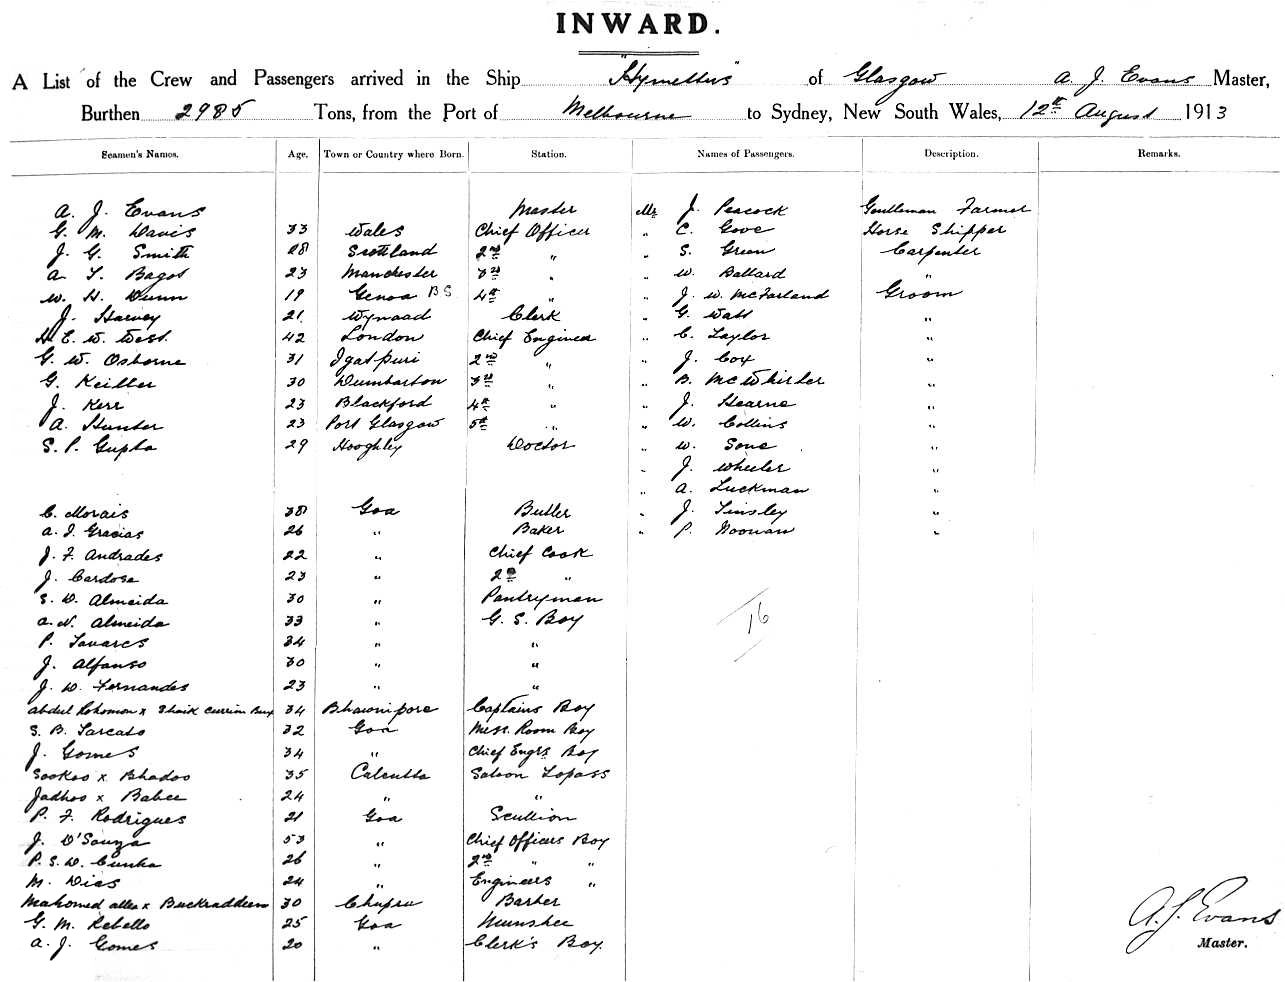 INWARD.
A List of the Crew and Passengers arrived in the Ship "Hymettus" of Glasgow A. J. Evans Master,
Burthen 2985 Tons, from the Port of Melbourne to Sydney, New South Wales, 12th August 1913
Seamen's Names. Age. Town or Country where Born. Station. Names of Passengers. Description. Remarks.
A. J. Evans Master Mr J. Peacock Gentleman Farmer
G. M. Davis 33 Wales Chief Officer " C. Gove Horse Shipper
J. G. Smith 28 Scotland 2nd " " S. Green Carpenter
A. T. Bagot 23 Manchester 3rd " " W. Ballard "
W. H. Dunn 19 Genoa BS 4th " " J. W. McFarland Groom
J. Harvey 21 Wynaad Clerk " G. Watt "
H. E. W. West. 42 London Chief Engineer " C. Taylor "
G. W. Osborne 31 Igatpuri 2nd " " J. Cox "
G. Keiller 30 Dumbarton 3rd " " B. McWhirter "
J. Kerr 23 Blackford 4th " " J. Hearne "
A. Hunter 23 Port Glasgow 5th " " W. Collins "
S. P. Gupta 29 Hooghley Doctor " W. Sone "
" J. Wheeler "
" A. Luckman "
C. Morais 38 Goa Butler " J. Tinsley "
A. I. Gracias 26 " Baker " P. Noonan "
J. F. Andrades 22 " Chief Cook
J. Cardosa 23 " 2nd "
S. D. Almeida 30 " Pantryman
A. N. Almeida 33 " G. S. Boy
16
P. Tavares 34 " "
J. Alfanso 30 " "
J. W. Fernandes 23 " "
Abdul Rohomon x Shaik Currim Bux 34 Bhawnipore Captains Boy
S. B. Sarcato 32 Goa Mess Room Boy
J. Gomes 34 " Chief Engrs Boy
Sookoo x Bhadoo 35 Calcutta Saloon Topass
Jadhoo x Babee 24 " "
P. F. Rodrigues 21 Goa Scullion
J. D'Souza 53 " Chief Officers Boy
P. S. D. Cunha 26 " 2nd " "
M. Dias 24 " Engineers "
Mahomed Allee x Buckraddeen 30 Chupra Barber
G. M. Rebello 25 Goa Munshee
A. J. Gomes 20 " Clerk's Boy
A. J. Evans
Master.